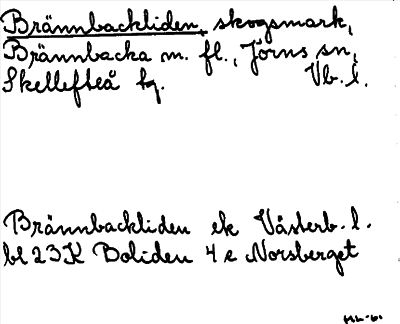 Brännbackliden, skogsmark,
Brännbacka m. fl., Jörns sn,
Skellefteå tg. Vb. l.
Brännbackliden ek Västerb. l.
bl 23K Boliden 4 e Norsberget